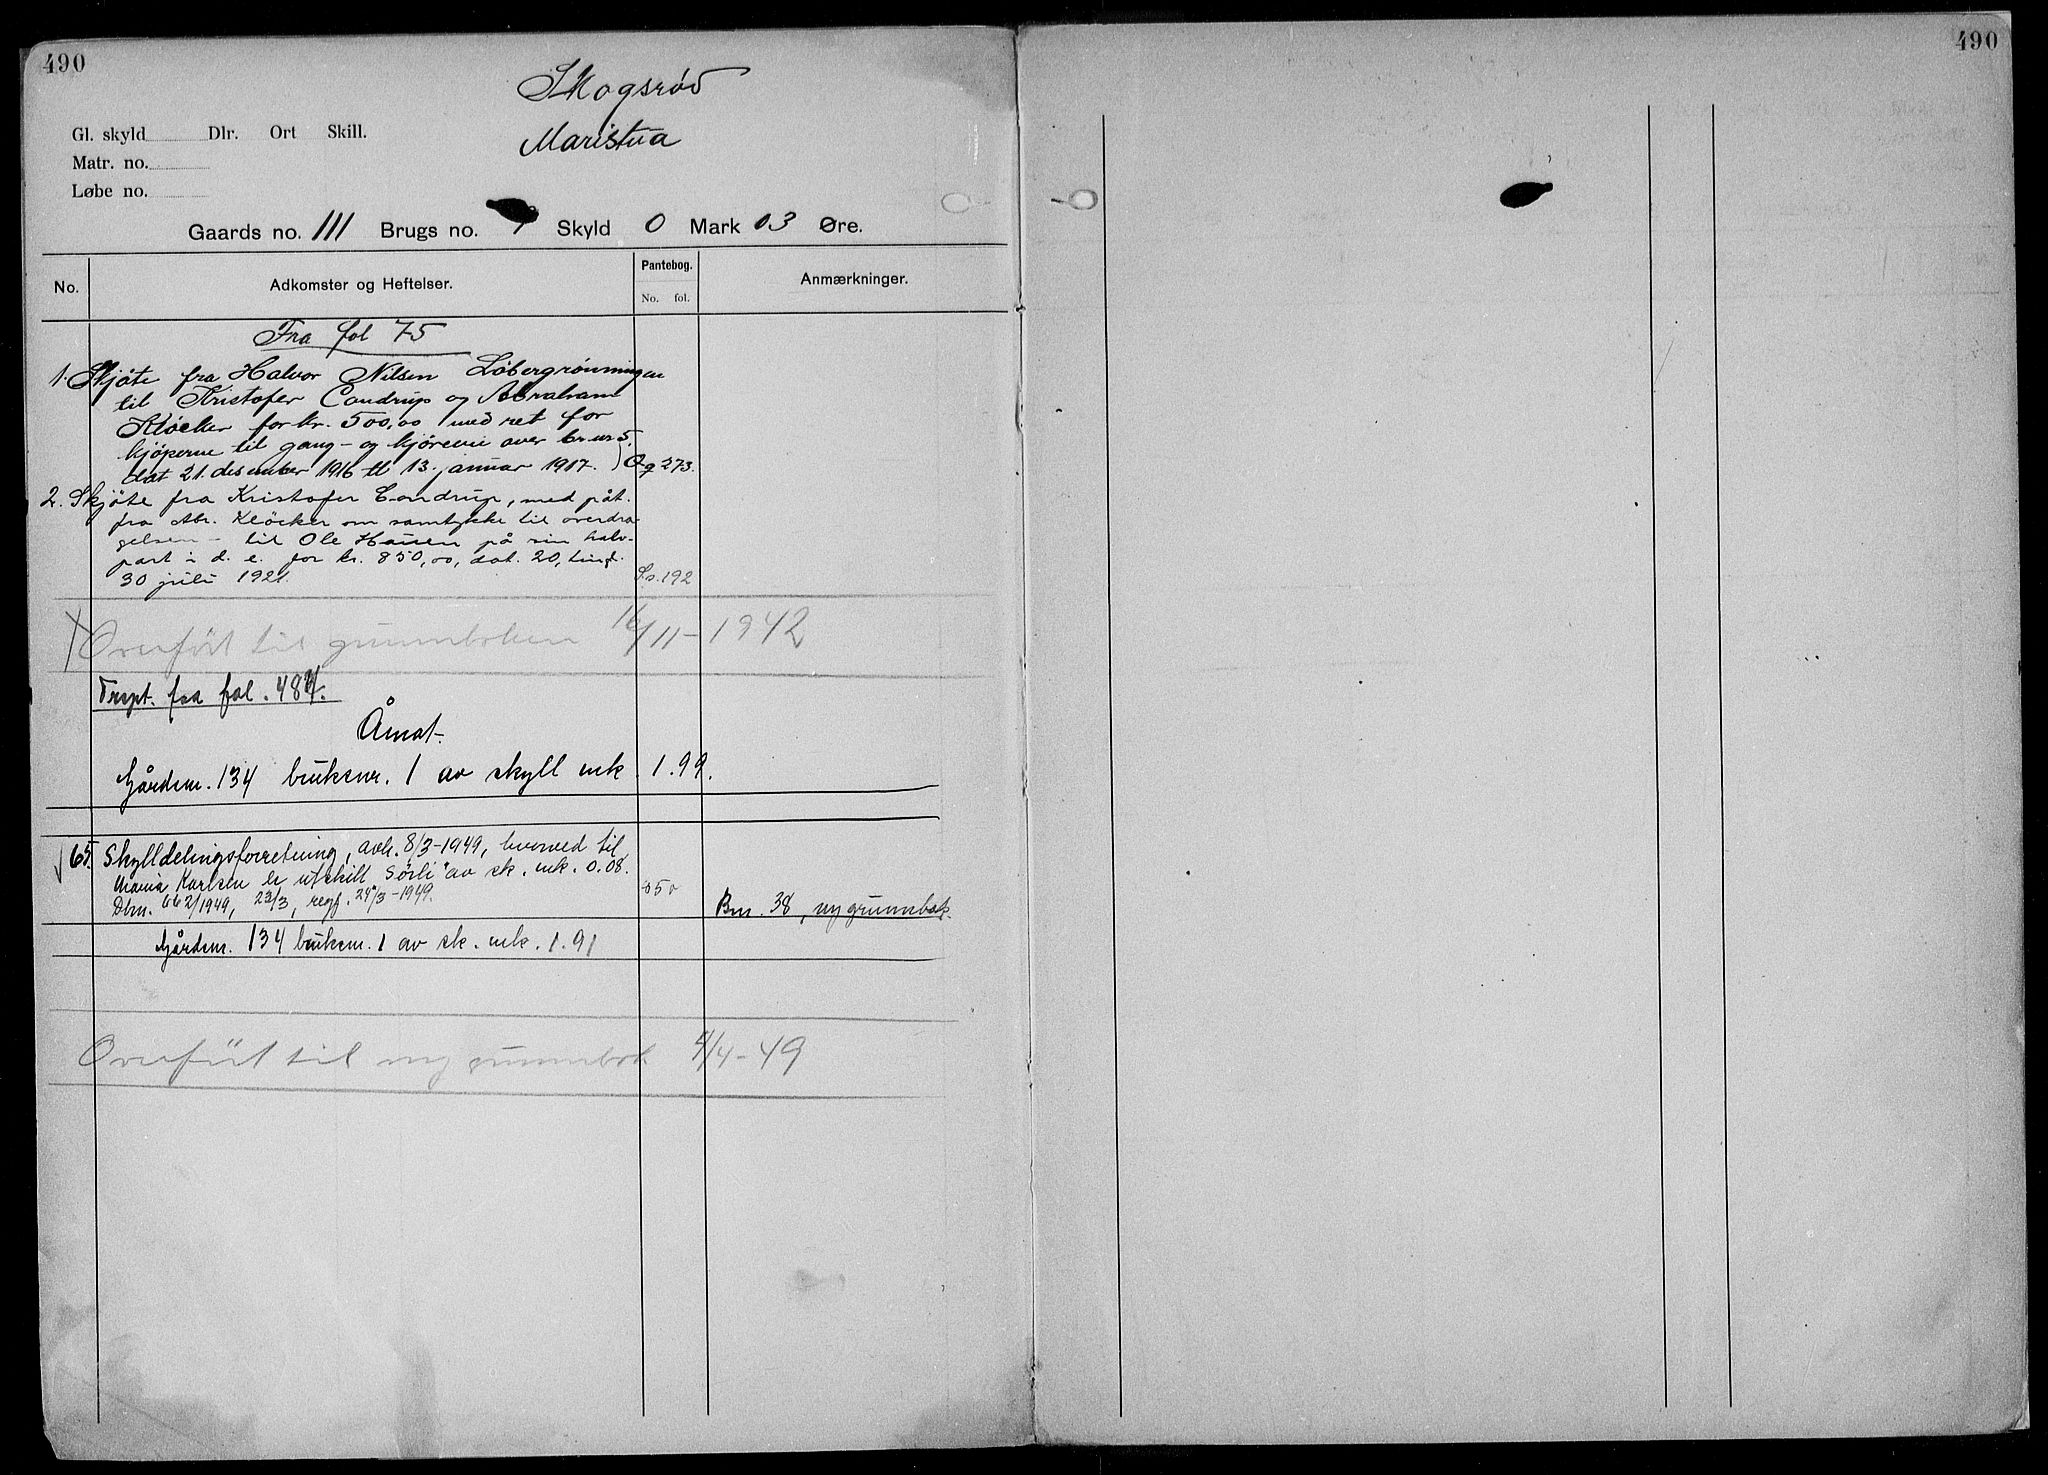 490
490
Skogsrød
Maristua
Gl. skyld Dlr. Ort Skill.
Matr. no.
Løbe no.
Gaards no. 111 Brugs no. Skyld 0 Mark 03 Øre.
No. Adkomster og Heftelser. Pantebog. Anmærkninger.
No. fol.
Fra fol 75
1. Skjøte fra Halvor Nilsen Løbergrønningen
til Kristofer Candrup og Abraham
Kløcker for kr. 500,00 med ret for
kjøperne til gang- og kjørevei over br.nr 5,
dat 21. desember 1916 tl 13. januar 1917. 273.
2. Skjøte fra Kristofer Candrup, med påt.
fra Abr. Kløcker om samtykke til overdra-
gelsen - til Ole Hansen på sin halv-
part i d. e. for kr. 850,00, dat. 20, tingl.
30 juli 1921. 192
Overført til grunnboken 16/11-1942
Trspt. fra fol. 484.
Åmot.
Gårdsnr. 134 bruksnr. 1 av skyll mk. 1.99.
65. Skylldelingsforretning, avh. 8/3-1949, hvorved til
Maria Karlsen er utskilt "Sörli" av sk. mk. 0.08.
Dbnr. 662/1949, 23/3, regf. 24/3-1949. 50
Bnr. 38, ny grunnbok.
Gårdsnr. 134 bruksnr. 1 av sk. mk. 1.91
Overført til ny grunnbok /4-49